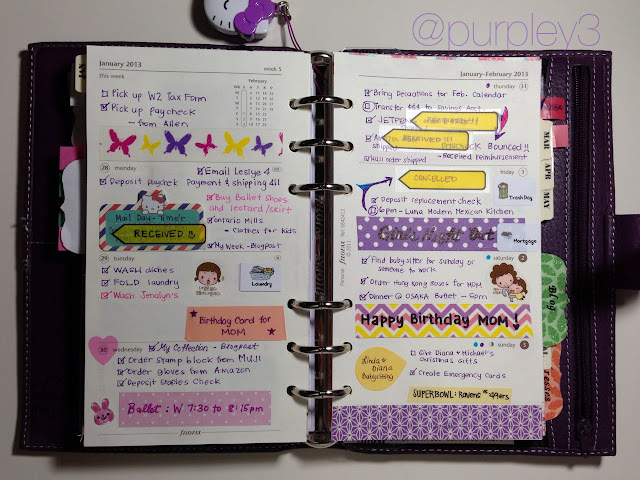 @purpley3
January 2013
week 5
this week
February
Pick up W2 Tax Form
Pick up paycheck
- from Allen
28 monday
Deposit paycheck
Email Leslye 4
Payment & shipping 411
Buy Ballet shoes
and leotard/skirt
Mail Day-Time'r
RECEIVED !!
Ontario Mills
- Clothes for kids
My Week - Blogpost
29 tuesday
WASH dishes
FOLD laundry
Wash Jenalyn's
Laundry
Birthday Card for
MOM
30 wednesday
My Collection - Blogpost
Order stamp block from MUJI
Order gloves from Amazon
Deposit Shoples Check
Ballet : W 7:30 to 8:15pm
filofax
January-February 2013
thursday 31
Bring Decorations for Feb. Calendar
Transfer to Savings Acct
JETPENS
RECEIVED !!
RECEIVED !!
shipped
Bounced !!
order shipped
- Received reimbursement
friday 1
CANCELLED
Trash Day
Deposit replacement check
6pm - Luna Modern Mexican Kitchen
Girls Night Out
Mortgage
saturday 2
Find babysitter for sunday
or someone to work
Order Hong Kong Roses for MOM
Dinner @ OSAKA Buffet - 5pm
Happy Birthday MOM !
sunday 3
Linda &
Diana
Babysitting
Give Diana & Michael's
Christmas Gifts
Create Emergency Cards
SUPERBOWL : Ravens * 49ers
filofax
Personal
Ref 68424
© 2011
MAR
APR
MAY
Blog